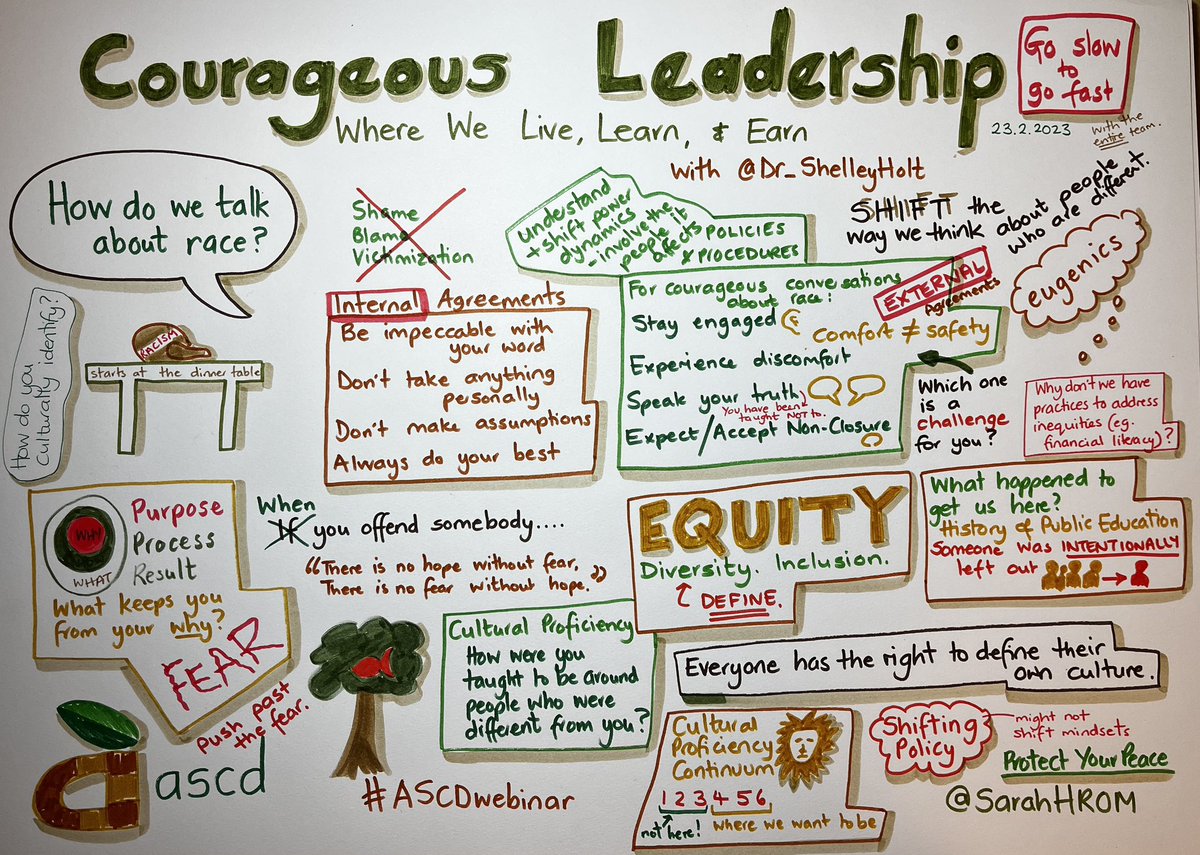 Courageous Leadership
Where We Live, Learn, & Earn
with @Dr_ShelleyHolt
Go slow
to
go fast
23.2.2023
with the
entire team.
How do we talk
about race?
Shame
Blame
Victimization
understand
+ shift power
dynamics
- involve the
people it
affects
POLICIES
& PROCEDURES
SHIFT the
way we think
about people
who are different.
eugenics
How do you
culturally identify?
RACISM
starts at the dinner table
Internal Agreements
Be impeccable with
your word
Don't take anything
personally
Don't make assumptions
Always do your best
For courageous conversations
about race:
EXTERNAL
Agreements
Stay engaged
comfort ≠ safety
Experience discomfort
Speak your truth
You have been
taught NOT to.
Expect/Accept Non-Closure
Which one
is a
challenge
for you?
Why don't we have
practices to address
inequities (eg.
financial literacy)?
WHY
WHAT
Purpose
Process
Result
What keeps you
from your why?
FEAR
Push past
the fear.
When
If you offend somebody....
"There is no hope without fear.
There is no fear without hope."
EQUITY
Diversity. Inclusion.
DEFINE.
What happened to
get us here?
History of Public Education
Someone was INTENTIONALLY
left out
Cultural Proficiency
How were you
taught to be around
people who were
different from you?
Everyone has the right to define their
own culture.
Cultural
Proficiency
Continuum
1 2 3 4 5 6
not here!
where we want to be
Shifting
Policy
might not
shift mindsets
Protect Your Peace
@SarahHROM
ascd
#ASCDwebinar